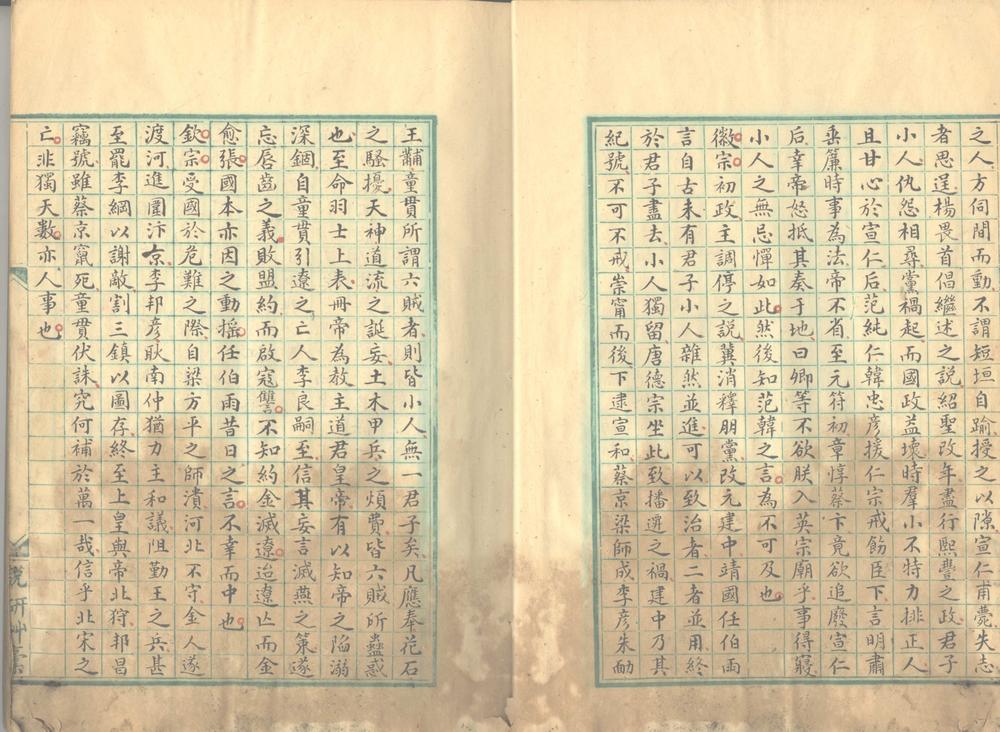 之人方伺間而動不謂短垣自踰授之以隙宣仁甫薨失志
者思逞楊畏首倡繼述之說紹聖改年盡行熙豐之政君子
小人仇怨相尋黨禍起而國政益壞時羣小不特力排正人
且甘心於宣仁后范純仁韓忠彥援仁宗戒飭臣下言明肅
垂簾時事為法帝不省至元符初章惇蔡卞竟欲追廢宣仁
后幸帝怒抵其奏于地曰卿等不欲朕入英宗廟乎事得寢
小人之無忌憚如此然後知范韓之言為不可及也
徽宗初政主調停之說冀消釋朋黨改元建中靖國任伯雨
言自古未有君子小人雜然並進可以致治者二者並用終
於君子盡去小人獨留唐德宗坐此致播遷之禍建中乃其
紀號不可不戒崇甯而後下逮宣和蔡京梁師成李彥朱勔
王黼童貫所謂六賊者則皆小人無一君子矣凡應奉花石
之騷擾天神道流之誕妄土木甲兵之煩費皆六賊所蠱惑
也至命羽士上表冊帝為教主道君皇帝有以知帝之陷溺
深錮自童貫引遼之亡人李良嗣至信其妄言滅燕之策遂
忘唇齒之義敗盟約而啟寇讐不知約金滅遼迨遼亾而金
愈張國本亦因之動搖任伯雨昔日之言不幸而中也
欽宗受國於危難之際自梁方平之師潰河北不守金人遂
渡河進圍汴京李邦彥耿南仲猶力主和議阻勤王之兵甚
至罷李綱以謝敵割三鎮以圖存終至上皇與帝北狩邦昌
竊號雖蔡京竄死童貫伏誅究何補於萬一哉信乎北宋之
亡非獨天數亦人事也